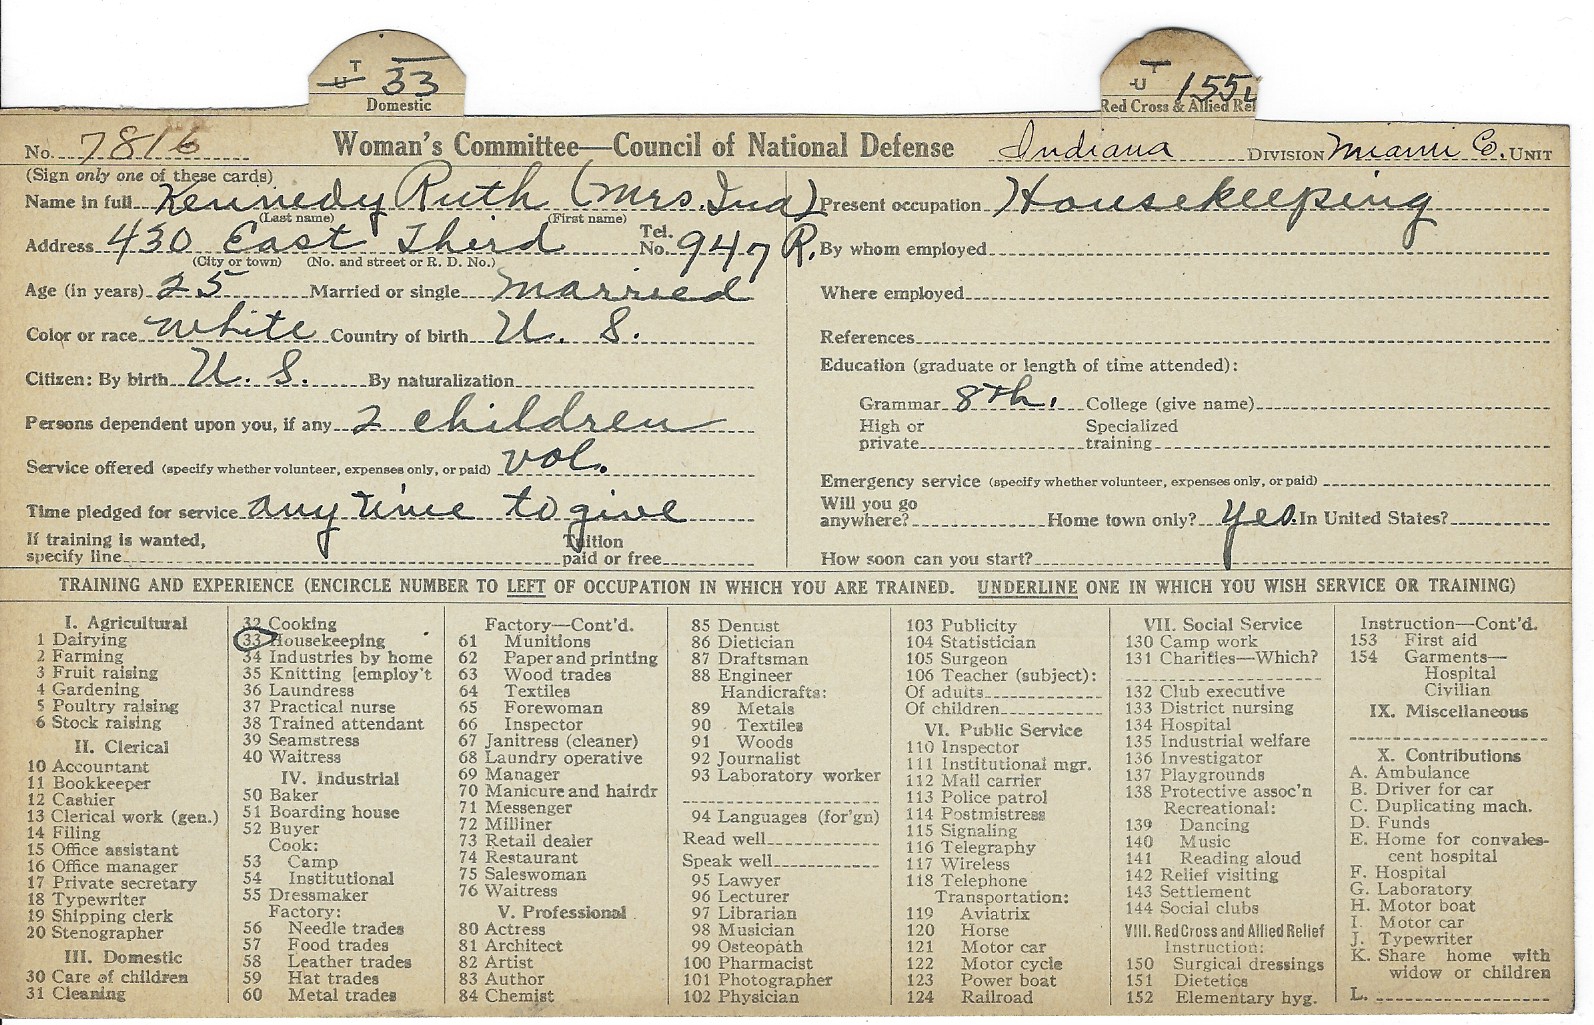 T
U 33
Domestic
T
U 155
Red Cross & Allied Rel
No. 7816
Woman's Committee—Council of National Defense
Indiana DIVISION Miami Co. UNIT
(Sign only one of these cards)
Name in full Kennedy Ruth (Mrs. Ina)
(Last name) (First name)
Address 430 East Third Tel. No. 947 R.
(City or town) (No. and street or R. D. No.)
Age (in years) 25 Married or single married
Color or race white Country of birth U. S.
Citizen: By birth U. S. By naturalization
Persons dependent upon you, if any 2 children
Service offered (specify whether volunteer, expenses only, or paid) vol.
Time pledged for service any time to give
If training is wanted, specify line Tuition paid or free
Present occupation Housekeeping
By whom employed
Where employed
References
Education (graduate or length of time attended):
Grammar 8th. College (give name)
High or private Specialized training
Emergency service (specify whether volunteer, expenses only, or paid)
Will you go anywhere? Home town only? Yes. In United States?
How soon can you start?
TRAINING AND EXPERIENCE (ENCIRCLE NUMBER TO LEFT OF OCCUPATION IN WHICH YOU ARE TRAINED. UNDERLINE ONE IN WHICH YOU WISH SERVICE OR TRAINING)
I. Agricultural
1 Dairying
2 Farming
3 Fruit raising
4 Gardening
5 Poultry raising
6 Stock raising
II. Clerical
10 Accountant
11 Bookkeeper
12 Cashier
13 Clerical work (gen.)
14 Filing
15 Office assistant
16 Office manager
17 Private secretary
18 Typewriter
19 Shipping clerk
20 Stenographer
III. Domestic
30 Care of children
31 Cleaning
32 Cooking
33 Housekeeping
34 Industries by home
35 Knitting [employ't
36 Laundress
37 Practical nurse
38 Trained attendant
39 Seamstress
40 Waitress
IV. Industrial
50 Baker
51 Boarding house
52 Buyer
Cook:
53 Camp
54 Institutional
55 Dressmaker
Factory:
56 Needle trades
57 Food trades
58 Leather trades
59 Hat trades
60 Metal trades
Factory—Cont'd.
61 Munitions
62 Paper and printing
63 Wood trades
64 Textiles
65 Forewoman
66 Inspector
67 Janitress (cleaner)
68 Laundry operative
69 Manager
70 Manicure and hairdr
71 Messenger
72 Milliner
73 Retail dealer
74 Restaurant
75 Saleswoman
76 Waitress
V. Professional
80 Actress
81 Architect
82 Artist
83 Author
84 Chemist
85 Dentist
86 Dietician
87 Draftsman
88 Engineer
Handicrafts:
89 Metals
90 Textiles
91 Woods
92 Journalist
93 Laboratory worker
94 Languages (for'gn)
Read well
Speak well
95 Lawyer
96 Lecturer
97 Librarian
98 Musician
99 Osteopath
100 Pharmacist
101 Photographer
102 Physician
103 Publicity
104 Statistician
105 Surgeon
106 Teacher (subject):
Of adults
Of children
VI. Public Service
110 Inspector
111 Institutional mgr.
112 Mail carrier
113 Police patrol
114 Postmistress
115 Signaling
116 Telegraphy
117 Wireless
118 Telephone
Transportation:
119 Aviatrix
120 Horse
121 Motor car
122 Motor cycle
123 Power boat
124 Railroad
VII. Social Service
130 Camp work
131 Charities—Which?
132 Club executive
133 District nursing
134 Hospital
135 Industrial welfare
136 Investigator
137 Playgrounds
138 Protective assoc'n
Recreational:
139 Dancing
140 Music
141 Reading aloud
142 Relief visiting
143 Settlement
144 Social clubs
VIII. Red Cross and Allied Relief
Instruction:
150 Surgical dressings
151 Dietetics
152 Elementary hyg.
Instruction—Cont'd.
153 First aid
154 Garments—
Hospital
Civilian
IX. Miscellaneous
X. Contributions
A. Ambulance
B. Driver for car
C. Duplicating mach.
D. Funds
E. Home for convales-
cent hospital
F. Hospital
G. Laboratory
H. Motor boat
I. Motor car
J. Typewriter
K. Share home with
widow or children
L.